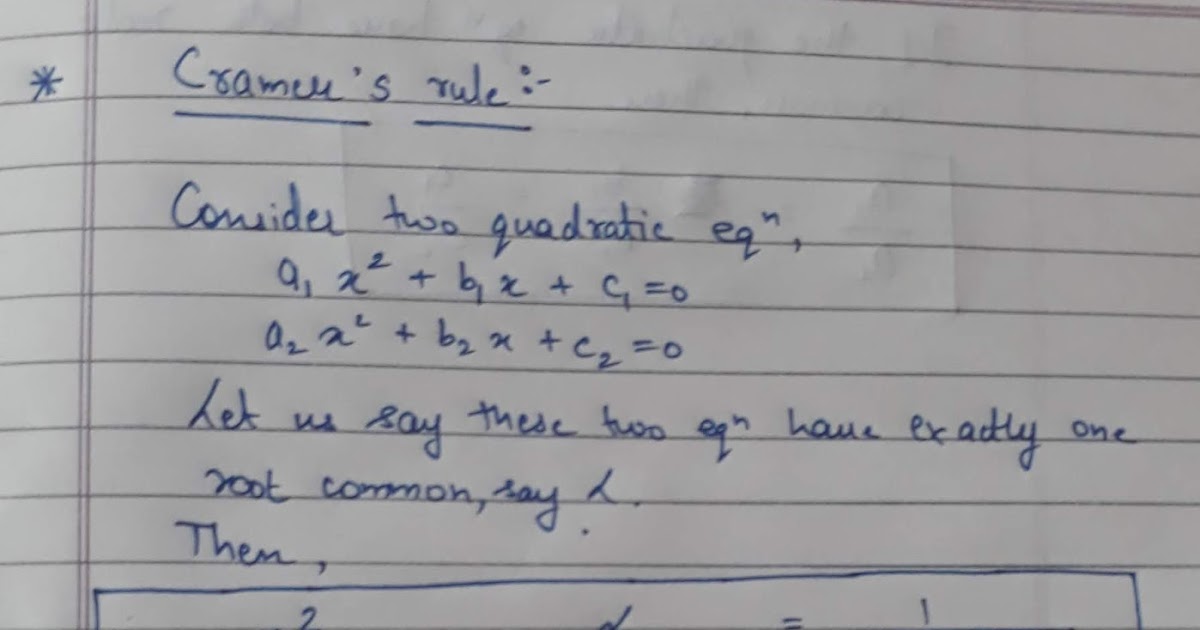 * Cramer's rule :-
Consider two quadratic eqⁿ,
a₁ x² + b₁ x + c₁ = 0
a₂ x² + b₂ x + c₂ = 0
Let us say these two eqⁿ have exactly one
root common, say α.
Then,